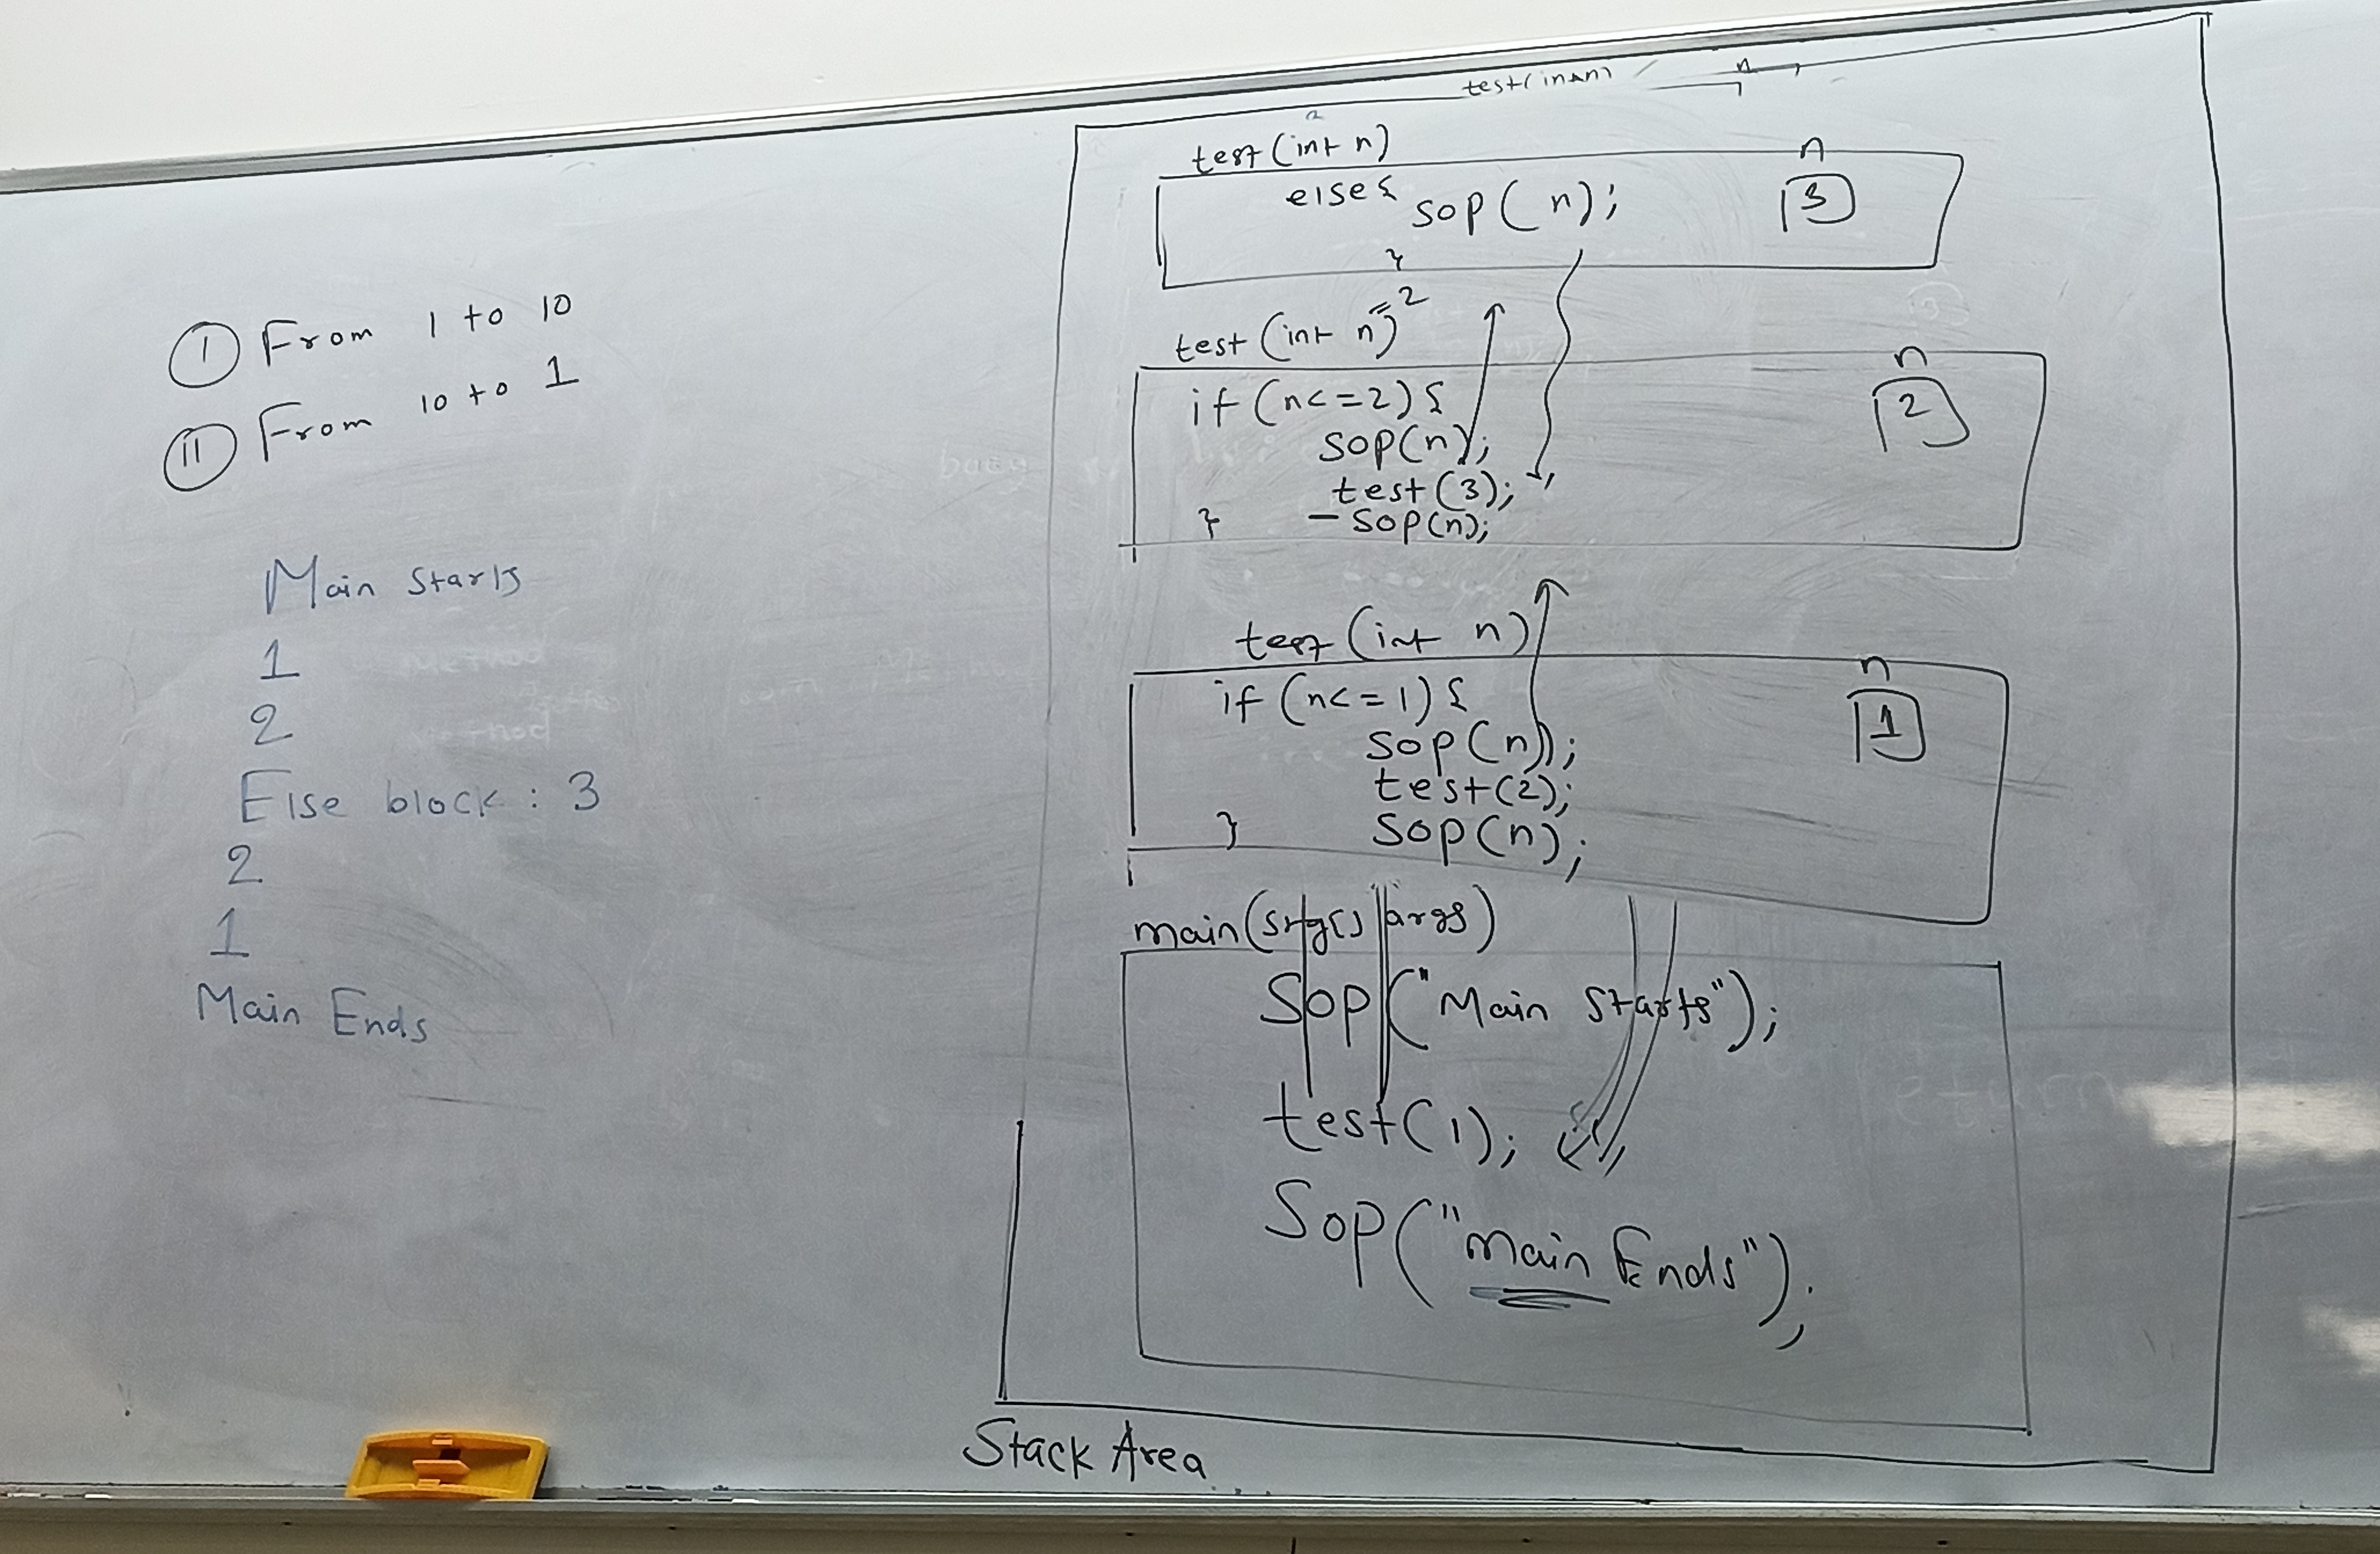 ① From 1 to 10
② From 10 to 1
Main Starts
1
2
Else block : 3
2
1
Main Ends
test(int n)
test(int n)
n
else{
sop(n);
3
}
test(int n)=2
n
if(n<=2){
2
sop(n);
test(3);
} - sop(n);
test(int n)
n
if(n<=1){
1
sop(n);
test(2);
} sop(n);
main(strg[] args)
Sop("Main Starts");
test(1);
Sop("Main Ends");
Stack Area